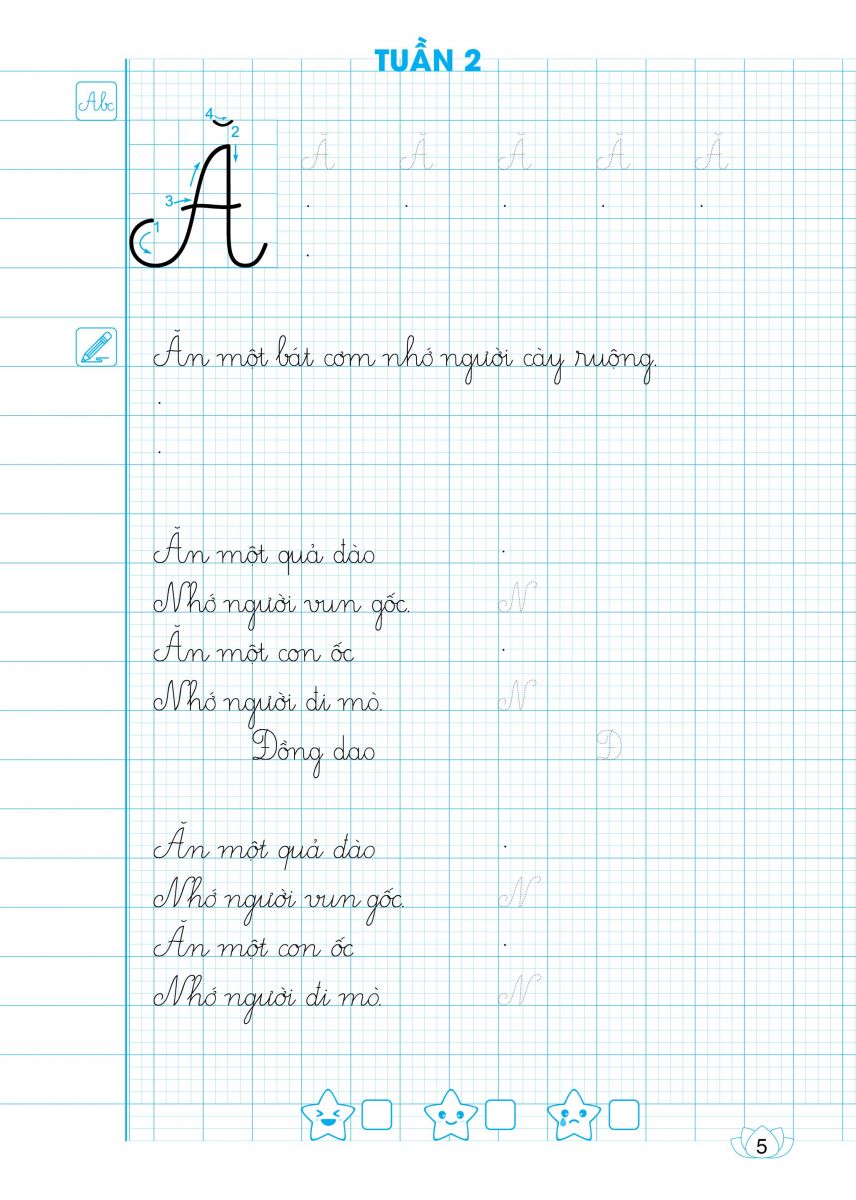 TUẦN 2
Abc
4
2
3
1
Ă
Ă Ă Ă Ă Ă
Ăn một bát cơm nhớ người cày ruộng.
Ăn một quả đào
Nhớ người vun gốc. N
Ăn một con ốc
Nhớ người đi mò. N
Đồng dao Đ
Ăn một quả đào
Nhớ người vun gốc. N
Ăn một con ốc
Nhớ người đi mò. N
5